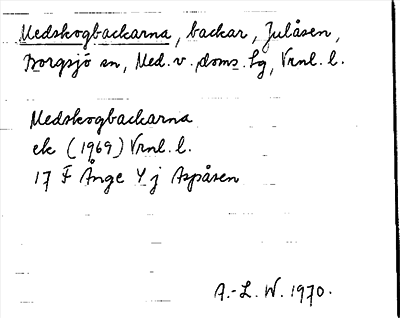 Medskogbackarna, backar, Julåsen,
Borgsjö sn, Med. v. doms. Lg, Vrnl. l.
Medskogbackarna
ek (1969) Vrnl. l.
17 F Ånge Y j Aspåsen
A.-L. W. 1970.